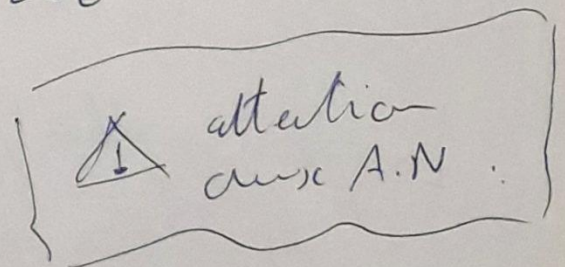 ⚠ attention
aux A.N.